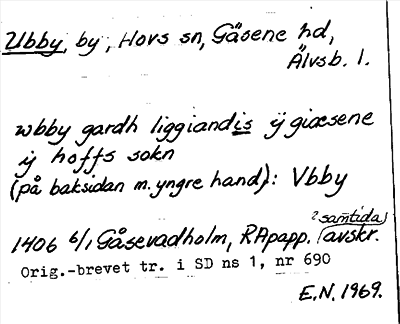 Ubby, by, Hovs sn, Gäsene hd,
Älvsb. l.
wbby gardh liggiandis ÿ giæsene
ÿ hoffs sokn
(på baksidan m. yngre hand): Vbby
? samtida
1406 6/1 Gåsevadholm, RApapp. (avskr.
Orig.-brevet tr. i SD ns 1, nr 690
E.N. 1969.